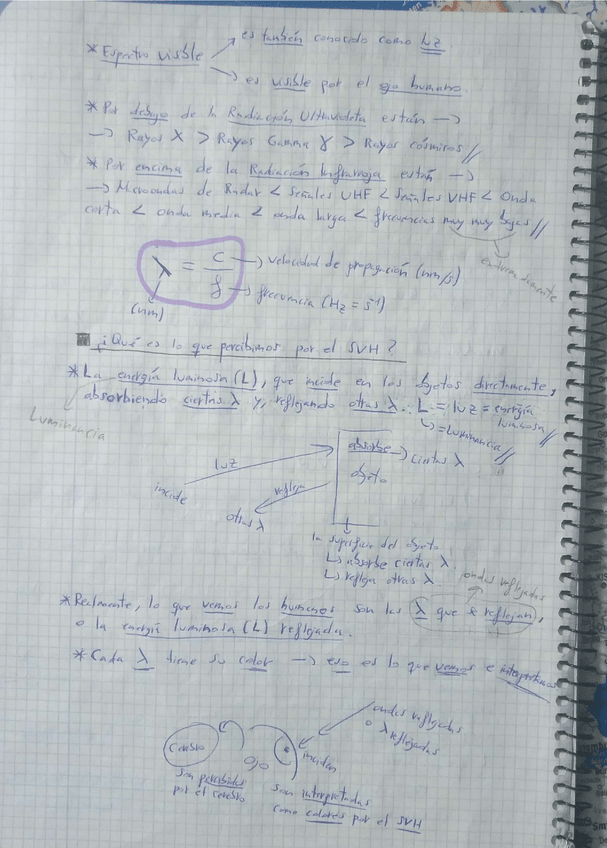 es también conocido como luz.
* Espectro visible
es visible por el ojo humano.
* Por debajo de la Radiación Ultravioleta están →
→ Rayos X > Rayos Gamma γ > Rayos cósmicos //
* Por encima de la Radiación Infrarroja están →
→ Microondas de Radar < Señales UHF < Señales VHF < Onda
corta < onda media < onda larga < frecuencias muy muy bajas //
extremadamente
λ = c/f
→ velocidad de propagación (nm/s)
→ frecuencia (Hz = s⁻¹)
(nm)
¿Qué es lo que percibimos por el SVH?
* La energía luminosa (L), que incide en los objetos directamente,
absorbiendo ciertas λ y, reflejando otras λ ∴ L = luz = energía
luminosa //
= Luminancia //
Luminancia
luz
absorbe → ciertas λ
objeto
incide
refleja
otras λ
la superficie del objeto
↳ absorbe ciertas λ.
↳ refleja otras λ
ondas reflejadas
* Realmente, lo que vemos los humanos son las λ que se reflejan,
o la energía luminosa (L) reflejada.
* Cada λ tiene su color → eso es lo que vemos e interpretamos
ondas reflejadas
o λ reflejadas
Cerebro
ojo
inciden
son percibidas
por el cerebro
son interpretadas
como colores por el SVH